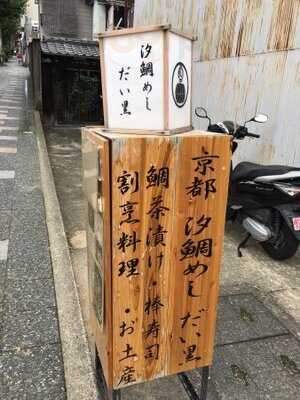 汐鯛めし
だい黒
京都 汐鯛めし だい黒
鯛茶漬け・棒寿司
割烹料理・お土産